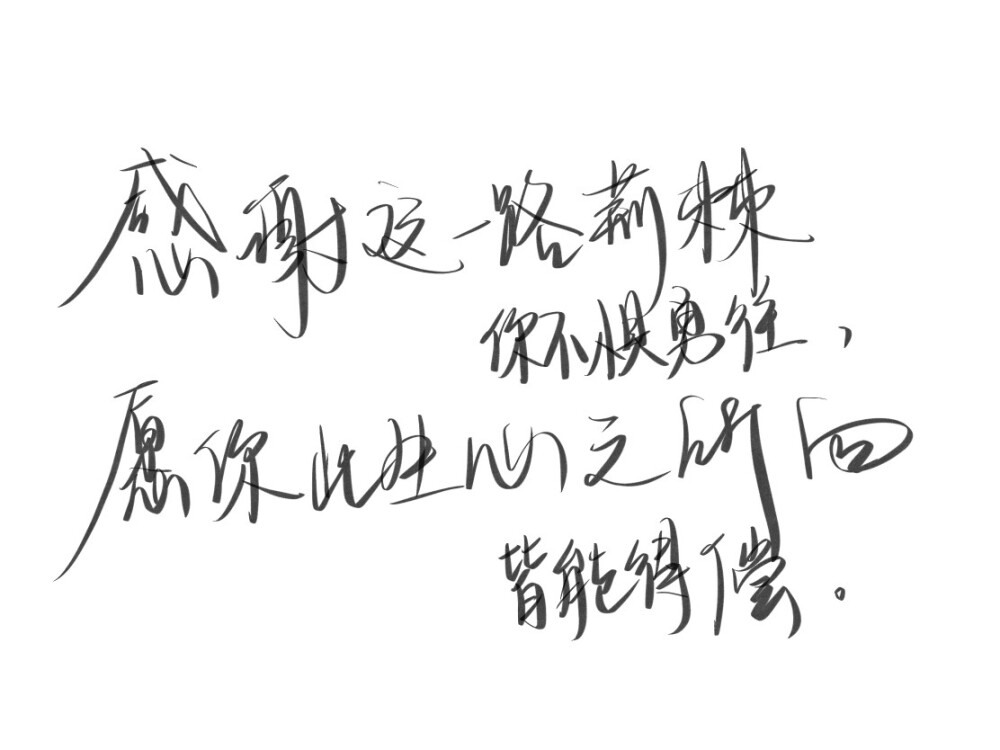 感谢这一路荊棘
你不惧勇往，
愿你此生心之所向
皆能得偿。